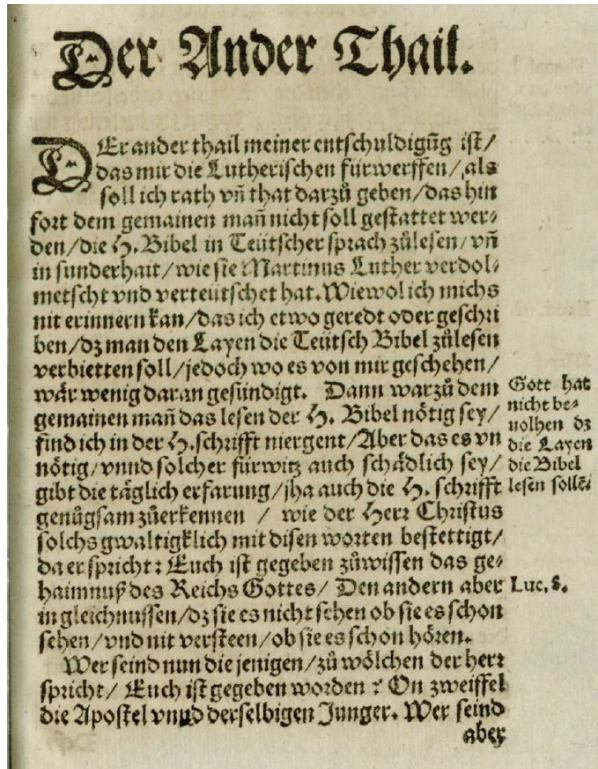 Der Ander Thail.
DEr ander thail meiner entschuldigūg ist/
das mir die Lutherischen fürwerffen/als
soll ich rath vñ that darzů geben/das hin
fort dem gemainen mañ nicht soll gestattet wer⸗
den/die H. Bibel in Teütscher sprach zůlesen/vñ
in sunderhait/wie sie Martinus Luther verdol⸗
metscht vnd verteutschet hat. Wiewol ich michs
nit erinnern kan/das ich etwo geredt oder geschri
ben/dz man den Layen die Teutsch Bibel zůlesen
verbietten soll/jedoch wo es von mir geschehen/
wår wenig daran gesündigt. Dann warzů dem
gemainen mañ das lesen der H. Bibel nötig sey/
find ich in der H.schrifft niergent/Aber das es vn
nötig/vnnd solcher fürwitz auch schädlich sey/
gibt die täglich erfarung/jha auch die H. schrifft
genůgsam zůerkennen / wie der Herr Christus
solchs gwaltigklich mit disen worten bestettigt/
da er spricht: Euch ist gegeben zůwissen das ge⸗
haimnuß des Reichs Gottes/ Den andern aber
in gleichnussen/dz sie es nicht sehen ob sie es schon
sehen/vnd nit versteen/ob sie es schon hören.
Wer seind nun die jenigen/zů wölchen der herr
spricht/ Euch ist gegeben worden? On zweiffel
die Apostel vnnd derselbigen Junger. Wer seind
aber
Gott hat
nicht be⸗
uolhen dz
die Layen
die Bibel
lesen sollē.
Luc. 8.